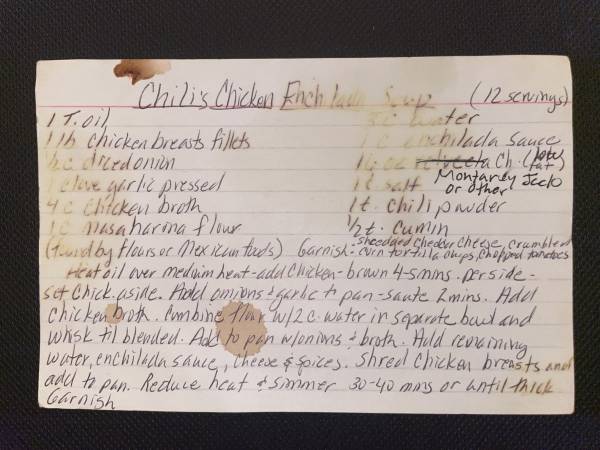 Chili's Chicken Enchilada Soup (12 servings)
1 T. oil
3 c water
1 lb chicken breasts fillets
1 c enchilada sauce
½ c diced onion
16 oz Velveeta ch. (low fat)
Montarey Jack
or other
1 clove garlic pressed
1 t. salt
4 c chicken broth
1 t. chili powder
1 c masa harina flour
½ t. cumin
(found by flours or Mexican foods) Garnish - shredded chedder cheese, crumbled
corn tortilla chips, chopped tomatoes
Heat oil over medium heat - add chicken - brown 4-5 mins. per side -
set chick. aside. Add onions & garlic to pan - saute 2 mins. Add
chicken broth. Combine flour w/2 c. water in separate bowl and
whisk til blended. Add to pan w/onions & broth. Add remaining
water, enchilada sauce, cheese & spices. Shred chicken breasts and
add to pan. Reduce heat & simmer 30-40 mins or until thick
Garnish